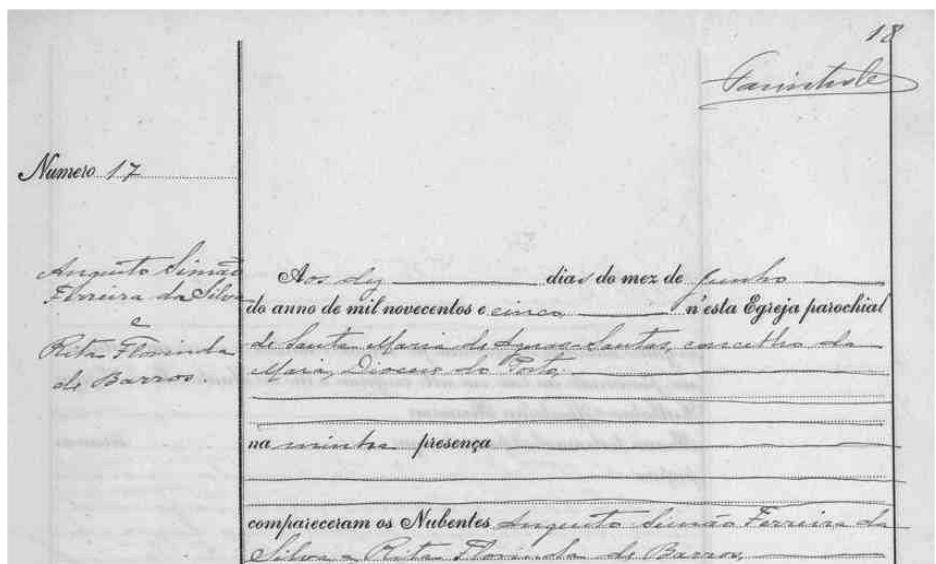 18
Numero 17
Augusto Simão
Ferreira da Silva
e
Rita Florinda
de Barros.
Aos dez dias do mez de Junho
do anno de mil novecentos e cinco, n'esta Egreja parochial
de Santa Maria de Aguas-Santas, concelho da
Maia, Diocese do Porto,
na minha presença
compareceram os Nubentes Augusto Simão Ferreira da
Silva e Rita Florinda de Barros,